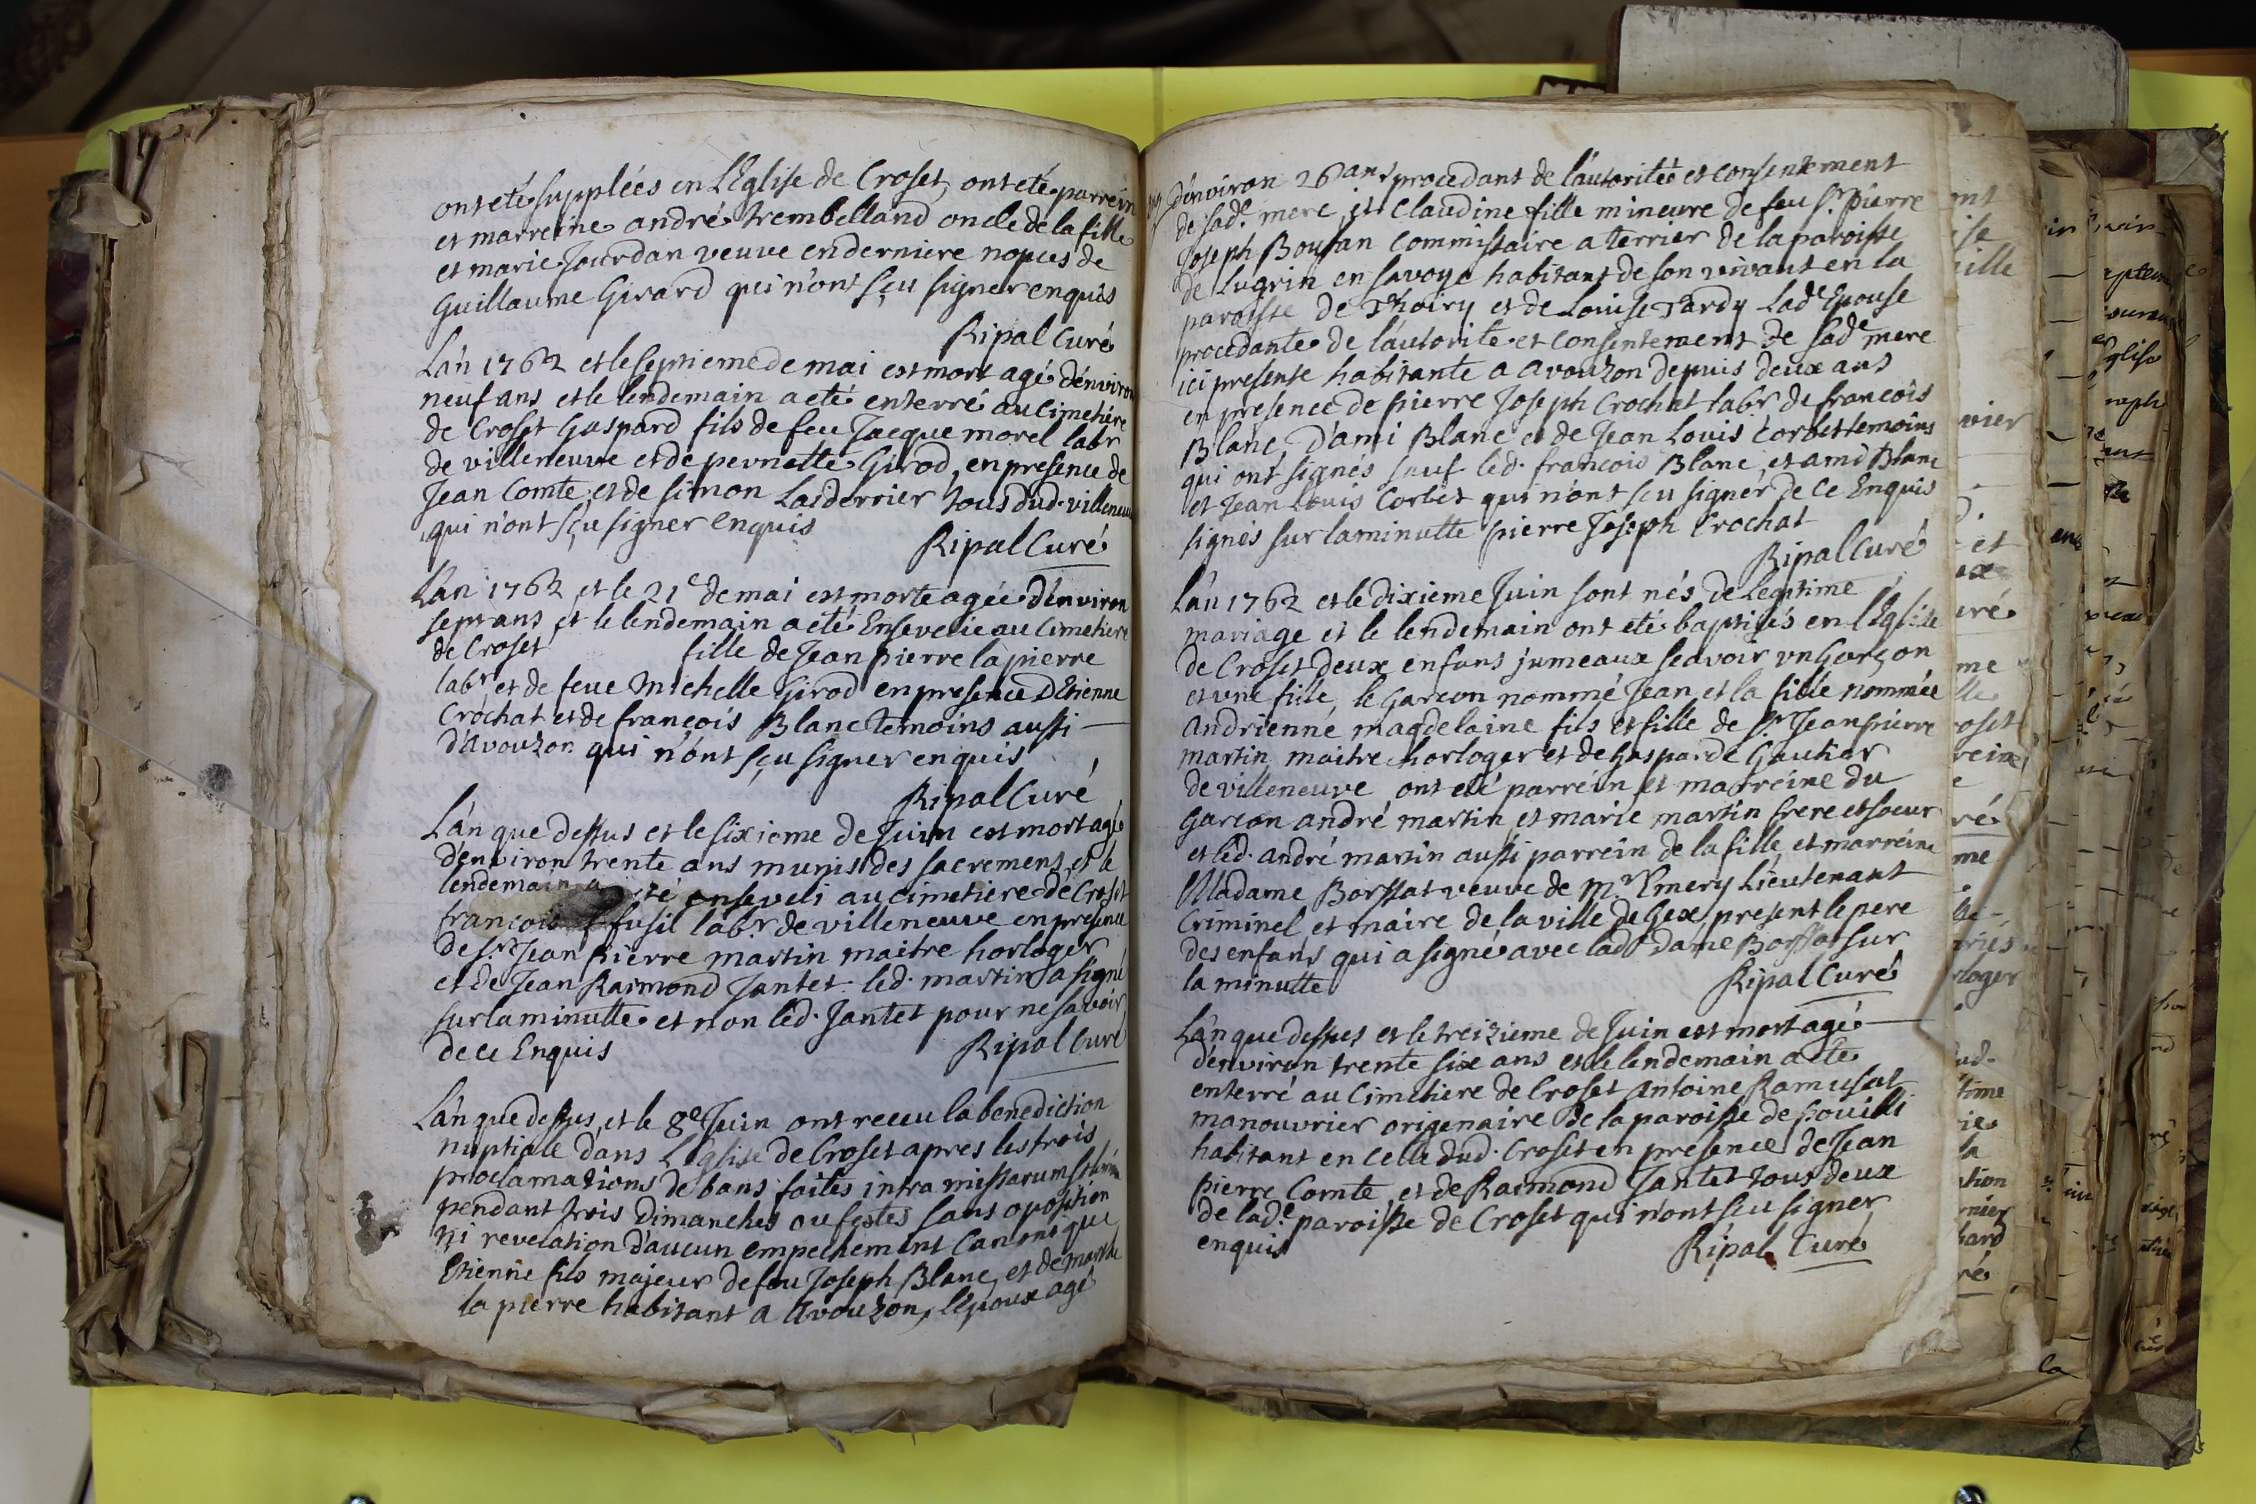 ont eté supplées en L'Eglise de Croset, ont eté parrein
et marreine andré trembelland oncle de la fille
et marie Jourdan veuve en derniere nopces de
Guillaume Girard qui n'ont sçu signer enquis
Ripal Curé
L'an 1762 et le septieme de mai est mort agé d'environ
neuf ans et le lendemain a eté enterré au cimetiére
de Croset Gaspard fils de feu Jacque morel labr
de villeneuve et de pernette Girod, en presence de
Jean Comte et de simon Lasderrier tous dud. villeneuve
qui n'ont sçu signer enquis
Ripal Curé
L'an 1762 et le 21e de mai est morte agée d'environ
sept ans et le lendemain a eté Enseveli au Cimetiere
de Croset fille de Jean pierre la pierre
labr et de feue Michelle Girod en presence d'Etienne
Crochat et de françois Blanc temoins aussi
d'avouzon qui n'ont sçu signer enquis
Ripal Curé
L'an que dessus et le sixieme de Juin est mort agé
d'environ trente ans munis des sacremens, et le
lendemain a eté enseveli au cimetiere de Croset
francois fusil labr de villeneuve en presence
de sr Jean Pierre martin maitre horloger
et de Jean Raimond Jantet led. martin a signé
sur la minutte et non led. Jantet pour ne savoir
de ce Enquis
Ripal Curé
L'an que dessus, et le 8e Juin ont receu la benediction
nuptiale dans L'Eglise de Croset apres les trois
proclamations de bans faites intra missarum
pendant trois Dimanches ou festes sans oposition
ni revelation d'aucun empechement Canonique
Etienne fils majeur de feu Joseph Blanc, et de
la pierre habitant a Avouzon, l'epoux agé
d'environ 26 ans procedant de l'autorité et consentement
de sade mere, et Claudine fille mineure de feu sr pierre
Joseph Boujan Commissaire a terrier de la paroisse
de Lugrin en savoye habitant de son vivant en la
paroisse de Thoiry et de Louise Tardy Lade Epouse
procedante de l'autorite et consentement de sade mere
ici presente habitante a avouzon depuis deux ans
en presence de pierre Joseph Crochat labr de francois
Blanc, D'ami Blanc et de Jean Louis Corbet temoins
qui ont signés sauf led. francois Blanc, et ami Blanc
et Jean Louis Corbet qui n'ont sçu signer de ce Enquis
signés sur la minutte pierre Joseph Crochat
Ripal Curé
L'an 1762 et le dixieme Juin sont nés de Legitime
mariage et le lendemain ont eté baptisés en l'Eglise
de Croset deux enfans jumeaux scavoir un Garçon
et une fille, le Garcon nommé Jean, et la fille nommée
Andrienne magdelaine fils et fille de sr Jean pierre
martin maitre horloger et de Gasparde Gautier
de villeneuve ont eté parrein et marreine du
Garcon andré martin et marie martin frere et soeur
et led. andré martin aussi parrein de la fille, et marreine
Madame Borssat veuve de Mr Emery Lieutenant
Criminel et maire de la ville de Gex present le pere
des enfans qui a signé avec lade Dame Borssat sur
la minutte
Ripal Curé
L'an que dessus et le treizieme de Juin est mort agé
d'environ trente six ans et le lendemain a eté
enterré au Cimetiere de Croset Antoine Ramusat
manouvrier origenaire de la paroisse de Pouilli
habitant en celle dud. Croset en presence de Jean
pierre Comte, et de Raimond Jantet tous deux
de lade paroisse de Croset qui n'ont sçu signer
enquis
Ripal Curé